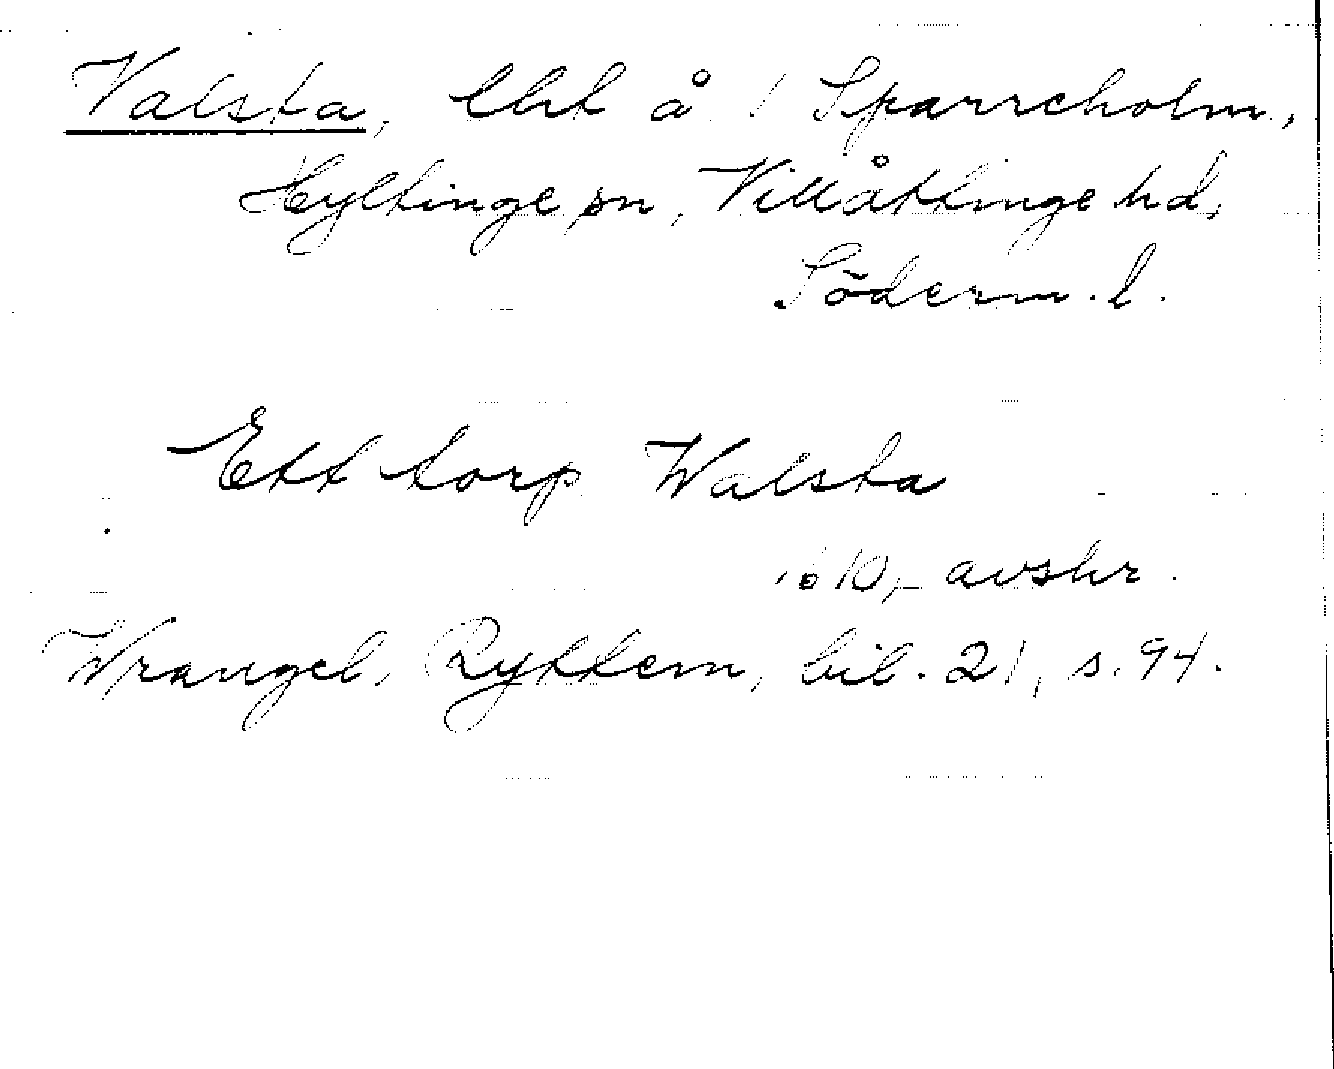 Valsta, lht å 1 Sparreholm,
Hyltinge sn, Villåttinge hd,
Söderm. l.
Ett torp Walsta
1610, avskr.
Wrangel, Ryttern, bil. 21, s. 94.